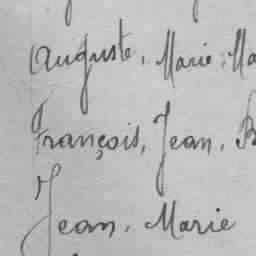 Auguste, Marie, Ma
François, Jean, B
Jean, Marie